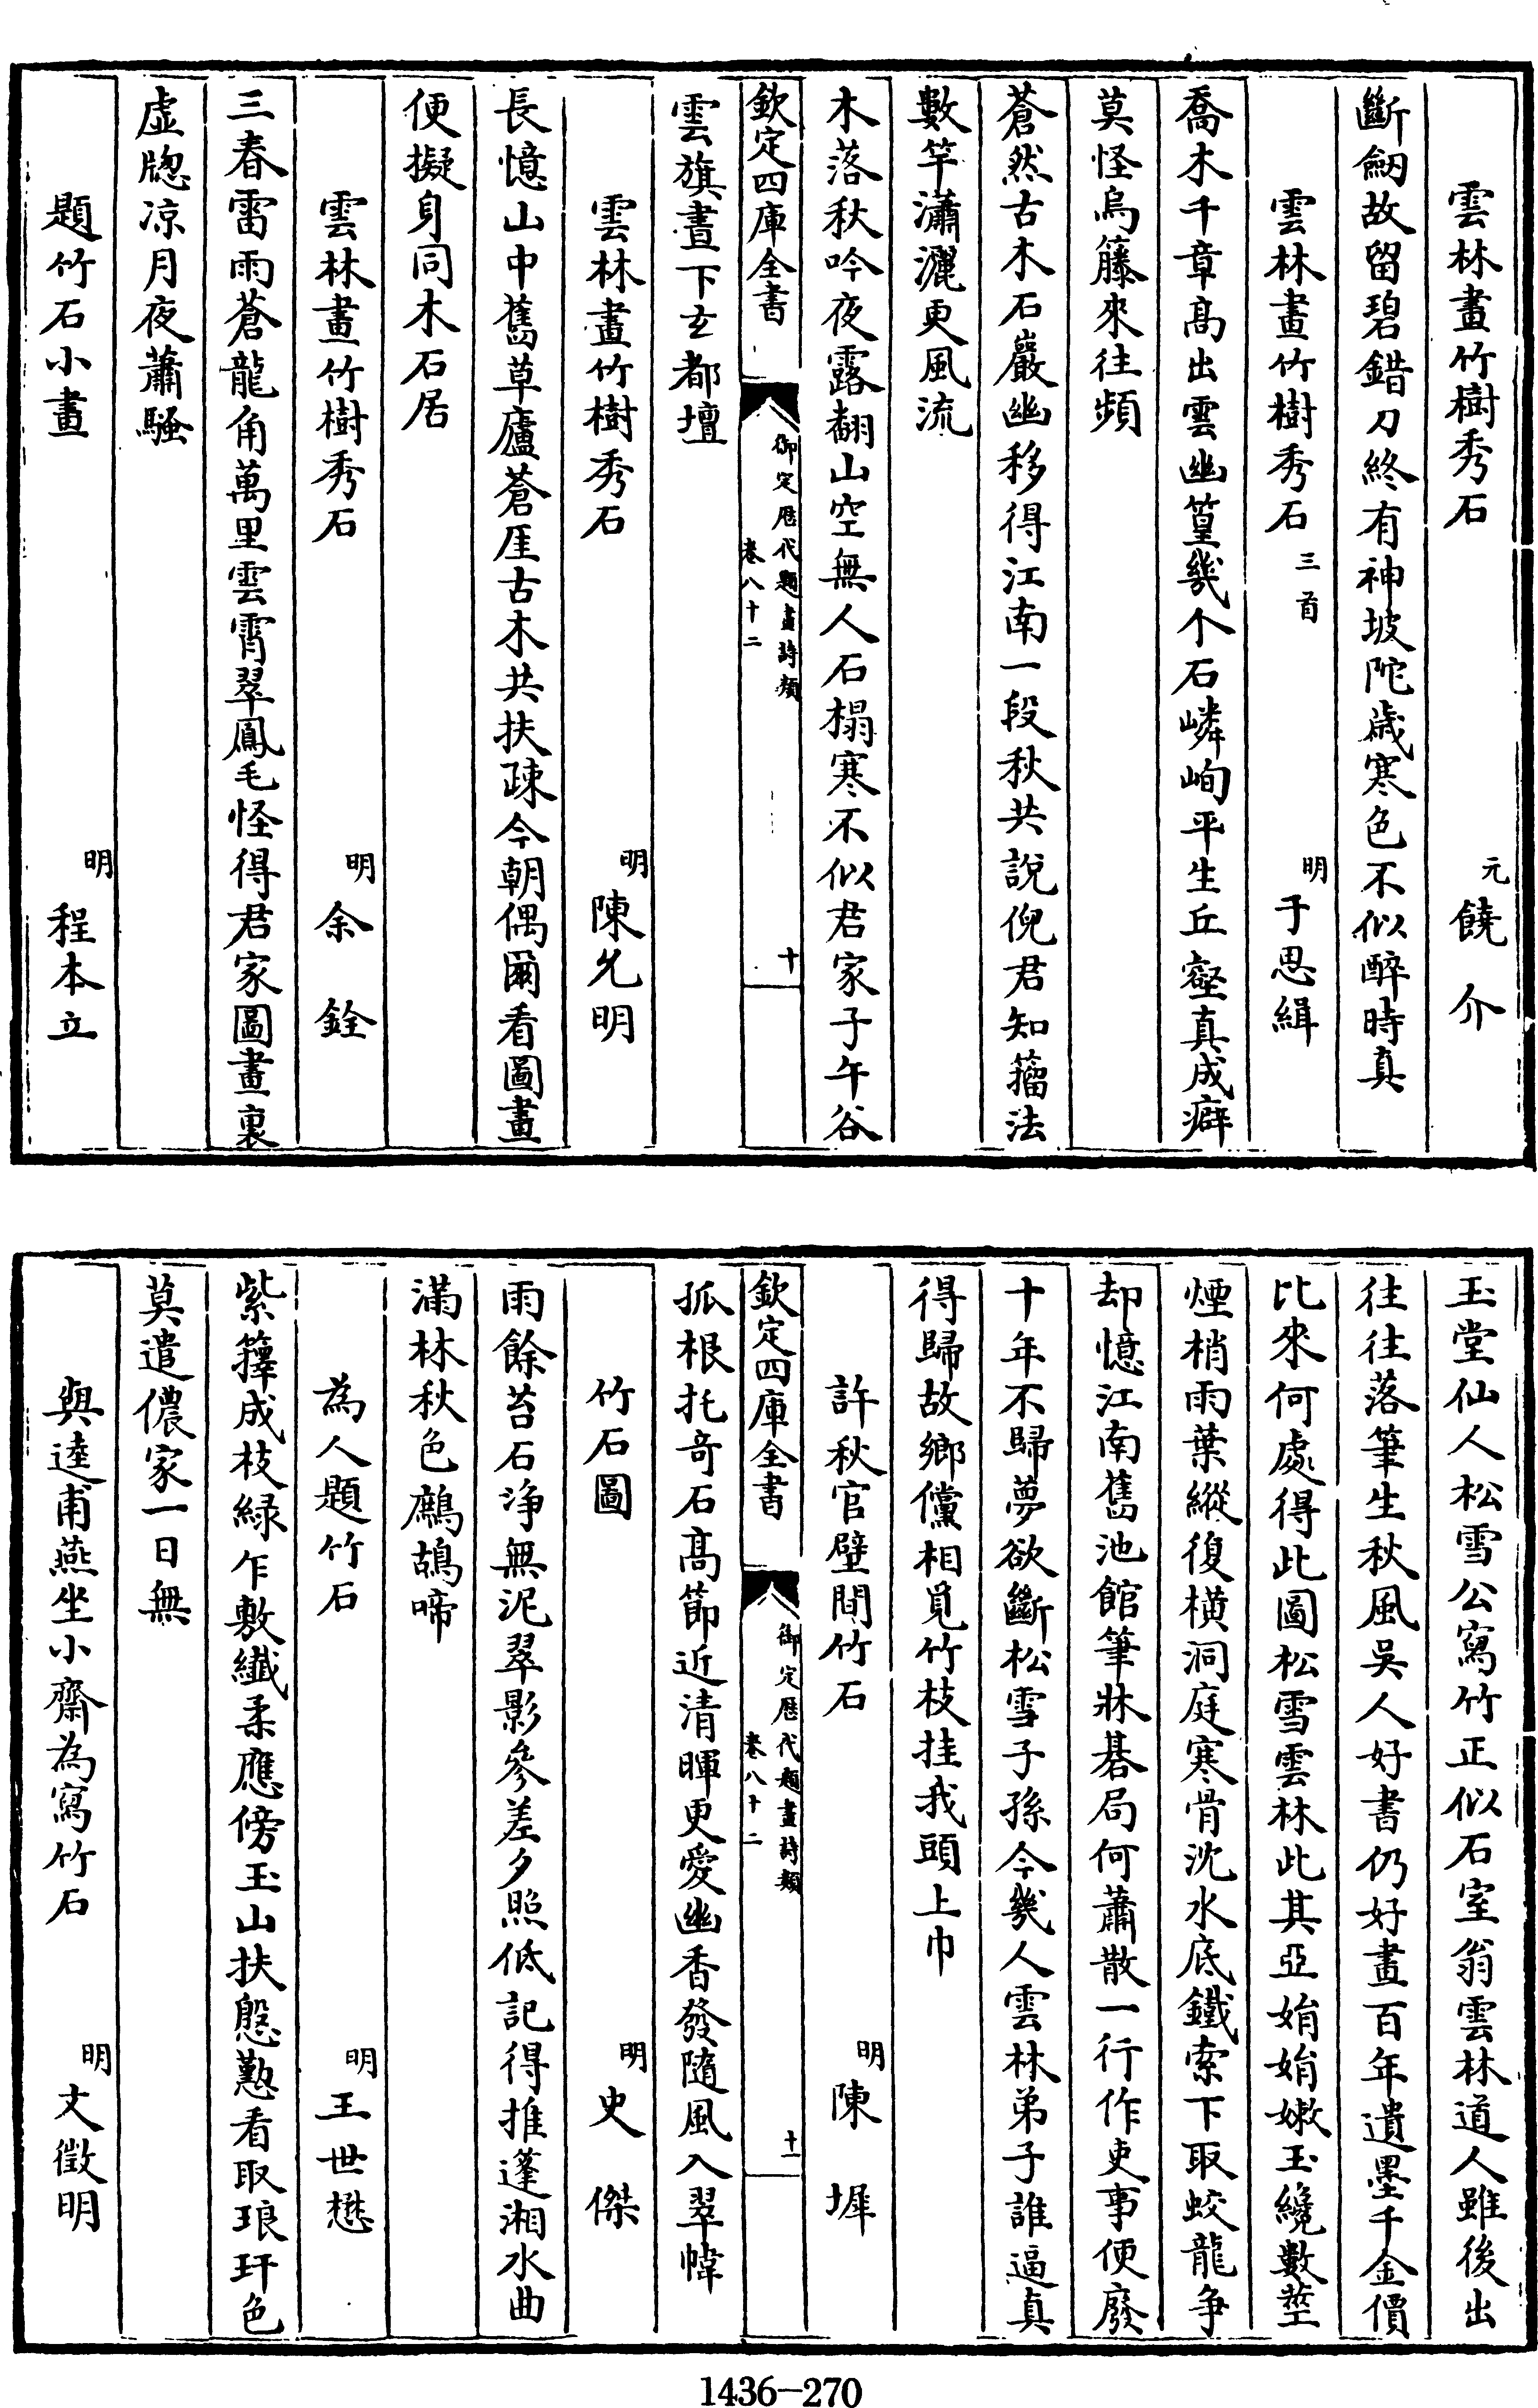 雲林畫竹樹秀石 元 饒介
斷劒故留碧錯刀終有神坡陀歲寒色不似醉時真
雲林畫竹樹秀石 三首 明 于思緝
喬木千章髙出雲幽篁幾个石嶙峋平生丘壑真成癖
莫怪烏籐來往頻
蒼然古木石巖幽移得江南一段秋共說倪君知籀法
數竿瀟灑更風流
木落秋吟夜露翻山空無人石榻寒不似君家子午谷
欽定四庫全書 御定歴代題畫詩類 卷八十二 十
雲旗晝下玄都壇
雲林畫竹樹秀石 明 陳允明
長憶山中舊草廬蒼厓古木共扶疎今朝偶爾看圖畫
便擬身同木石居
雲林畫竹樹秀石 明 余銓
三春雷雨蒼龍角萬里雲霄翠鳳毛怪得君家圖畫裏
虛牕凉月夜蕭騷
題竹石小畫 明 程本立
玉堂仙人松雪公寫竹正似石室翁雲林道人雖後出
往往落筆生秋風吳人好書仍好畫百年遺墨千金價
比來何處得此圖松雪雲林此其亞娟娟嫩玉纔數莖
煙梢雨葉縱復橫洞庭寒骨沈水底鐵索下取蛟龍争
却憶江南舊池館筆牀碁局何蕭散一行作吏事便廢
十年不歸夢欲斷松雪子孫今幾人雲林弟子誰逼真
得歸故鄉儻相覓竹枝挂我頭上巾
許秋官壁間竹石 明 陳墀
欽定四庫全書 御定歴代題畫詩類 卷八十二 十一
孤根托奇石髙節近清暉更愛幽香發隨風入翠幃
竹石圖 明 史傑
雨餘苔石净無泥翠影參差夕照低記得推篷湘水曲
滿林秋色鷓鴣啼
為人題竹石 明 王世懋
紫籜成枝緑乍敷纖柔應傍玉山扶慇懃看取琅玕色
莫遣儂家一日無
與逵甫燕坐小齋為寫竹石 明 文徵明
1436-270